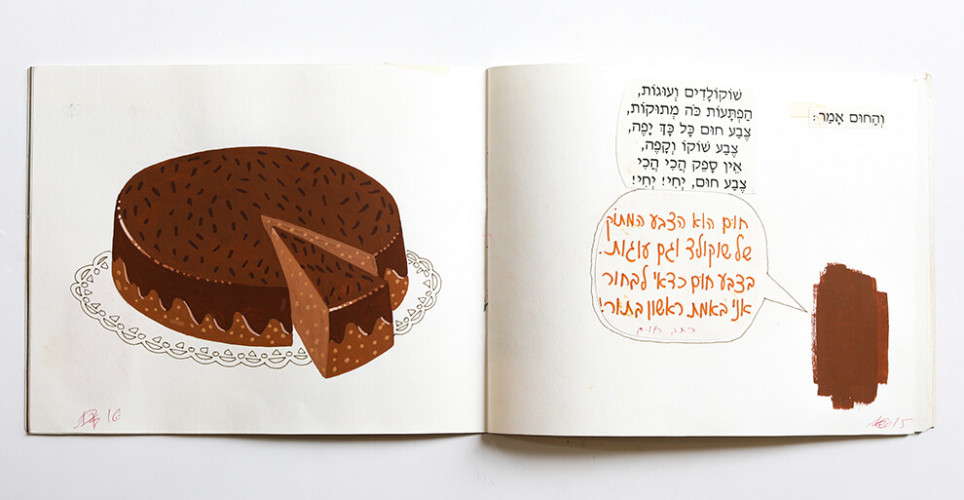 וְהַחוּם אָמַר:
שׁוֹקוֹלָדִים וְעוּגוֹת,
הַפְתָּעוֹת כֹּה מְתוּקוֹת,
צֶבַע חוּם כָּל כָּךְ יָפֶה,
צֶבַע שׁוֹקוֹ וְקָפֶה,
אֵין סָפֵק הֲכִי הֲכִי
צֶבַע חוּם, יְחִי! יְחִי!
חום הוא הצבע המתוק
של שוקולד וגם עוגות.
בצבע חום כדאי לבחור
אני באמת ראשון בתור!
חום
15
16